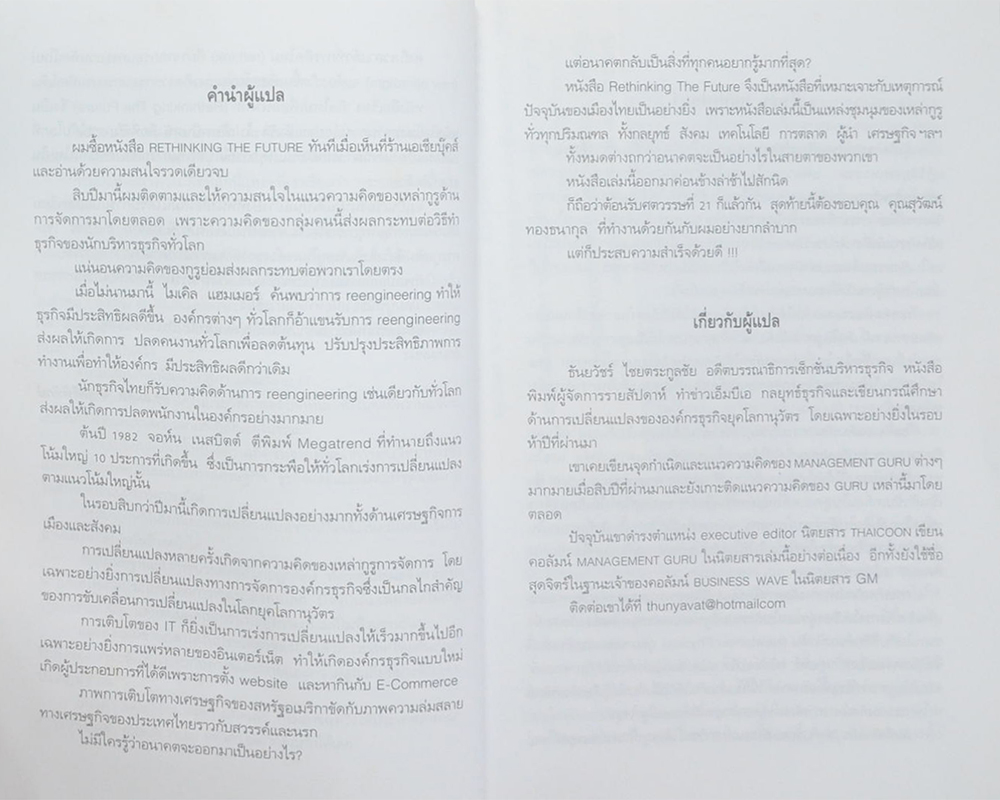 คำนำผู้แปล
ผมซื้อหนังสือ RETHINKING THE FUTURE ทันทีเมื่อเห็นที่ร้านเอเชียบุ๊คส์
และอ่านด้วยความสนใจรวดเดียวจบ
สิบปีมานี้ผมติดตามและให้ความสนใจในแนวความคิดของเหล่ากูรูด้าน
การจัดการมาโดยตลอด เพราะความคิดของกลุ่มคนนี้ส่งผลกระทบต่อวิธีทำ
ธุรกิจของนักบริหารธุรกิจทั่วโลก
แน่นอนความคิดของกูรูย่อมส่งผลกระทบต่อพวกเราโดยตรง
เมื่อไม่นานมานี้ ไมเคิล แฮมเมอร์ ค้นพบว่าการ reengineering ทำให้
ธุรกิจมีประสิทธิผลดีขึ้น องค์กรต่างๆ ทั่วโลกก็อ้าแขนรับการ reengineering
ส่งผลให้เกิดการ ปลดคนงานทั่วโลกเพื่อลดต้นทุน ปรับปรุงประสิทธิภาพการ
ทำงานเพื่อทำให้องค์กร มีประสิทธิผลดีกว่าเดิม
นักธุรกิจไทยก็รับความคิดด้านการ reengineering เช่นเดียวกับทั่วโลก
ส่งผลให้เกิดการปลดพนักงานในองค์กรอย่างมากมาย
ต้นปี 1982 จอห์น เนสบิตต์ ตีพิมพ์ Megatrend ที่ทำนายถึงแนว
โน้มใหญ่ 10 ประการที่เกิดขึ้น ซึ่งเป็นการกระพือให้ทั่วโลกเร่งการเปลี่ยนแปลง
ตามแนวโน้มใหญ่นั้น
ในรอบสิบกว่าปีมานี้เกิดการเปลี่ยนแปลงอย่างมากทั้งด้านเศรษฐกิจการ
เมืองและสังคม
การเปลี่ยนแปลงหลายครั้งเกิดจากความคิดของเหล่ากูรูการจัดการ โดย
เฉพาะอย่างยิ่งการเปลี่ยนแปลงทางการจัดการองค์กรธุรกิจซึ่งเป็นกลไกสำคัญ
ของการขับเคลื่อนการเปลี่ยนแปลงในโลกยุคโลกานุวัตร
การเติบโตของ IT ก็ยิ่งเป็นการเร่งการเปลี่ยนแปลงให้เร็วมากขึ้นไปอีก
เฉพาะอย่างยิ่งการแพร่หลายของอินเตอร์เน็ต ทำให้เกิดองค์กรธุรกิจแบบใหม่
เกิดผู้ประกอบการที่ได้ดีเพราะการตั้ง website และหากินกับ E-Commerce
ภาพการเติบโตทางเศรษฐกิจของสหรัฐอเมริกาขัดกับภาพความล่มสลาย
ทางเศรษฐกิจของประเทศไทยราวกับสวรรค์และนรก
ไม่มีใครรู้ว่าอนาคตจะออกมาเป็นอย่างไร?
แต่อนาคตกลับเป็นสิ่งที่ทุกคนอยากรู้มากที่สุด?
หนังสือ Rethinking The Future จึงเป็นหนังสือที่เหมาะเจาะกับเหตุการณ์
ปัจจุบันของเมืองไทยเป็นอย่างยิ่ง เพราะหนังสือเล่มนี้เป็นแหล่งชุมนุมของเหล่ากูรู
ทั่วทุกปริมณฑล ทั้งกลยุทธ์ สังคม เทคโนโลยี การตลาด ผู้นำ เศรษฐกิจ ฯลฯ
ทั้งหมดต่างถกว่าอนาคตจะเป็นอย่างไรในสายตาของพวกเขา
หนังสือเล่มนี้ออกมาค่อนข้างล่าช้าไปสักนิด
ก็ถือว่าต้อนรับศตวรรษที่ 21 ก็แล้วกัน สุดท้ายนี้ต้องขอบคุณ คุณสุวัฒน์
ทองธนากุล ที่ทำงานด้วยกันกับผมอย่างยากลำบาก
แต่ก็ประสบความสำเร็จด้วยดี !!!
เกี่ยวกับผู้แปล
ธันยวัชร์ ไชยตระกูลชัย อดีตบรรณาธิการเซ็กชั่นบริหารธุรกิจ หนังสือ
พิมพ์ผู้จัดการรายสัปดาห์ ทำข่าวเอ็มบีเอ กลยุทธ์ธุรกิจและเขียนกรณีศึกษา
ด้านการเปลี่ยนแปลงขององค์กรธุรกิจยุคโลกานุวัตร โดยเฉพาะอย่างยิ่งในรอบ
ห้าปีที่ผ่านมา
เขาเคยเขียนจุดกำเนิดและแนวความคิดของ MANAGEMENT GURU ต่างๆ
มากมายเมื่อสิบปีที่ผ่านมาและยังเกาะติดแนวความคิดของ GURU เหล่านี้มาโดย
ตลอด
ปัจจุบันเขาดำรงตำแหน่ง executive editor นิตยสาร THAICOON เขียน
คอลัมน์ MANAGEMENT GURU ในนิตยสารเล่มนี้อย่างต่อเนื่อง อีกทั้งยังใช้ชื่อ
สุดจิตร์ในฐานะเจ้าของคอลัมน์ BUSINESS WAVE ในนิตยสาร GM
ติดต่อเขาได้ที่ thunyavat@hotmailcom